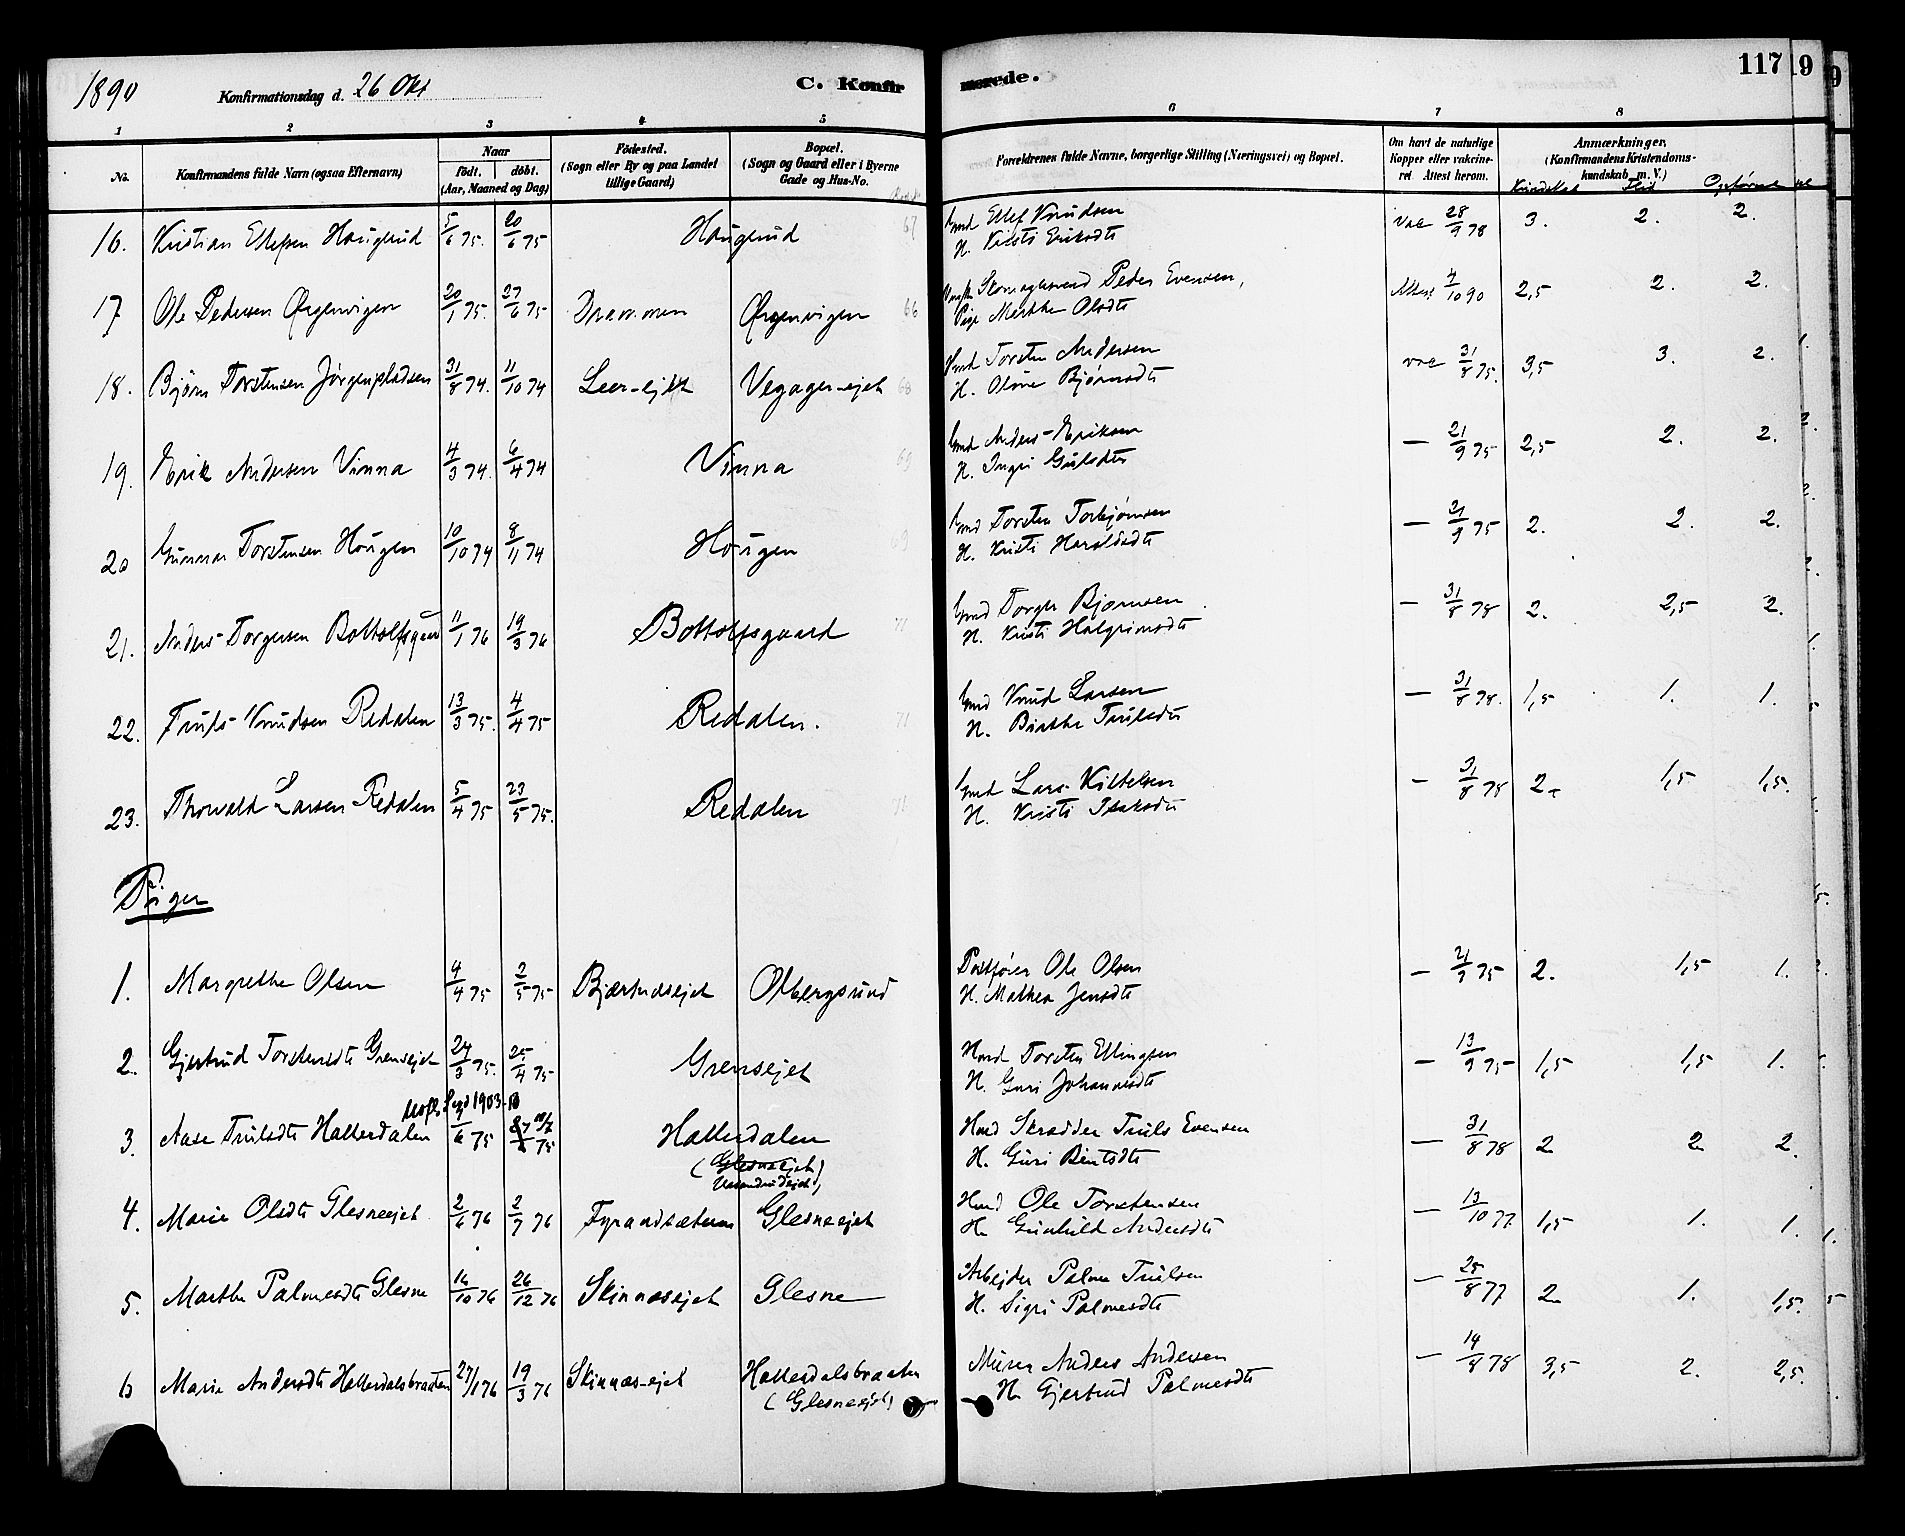 1890 Konfirmationsdag d. 26 Okt C. Konfir merede. 117 9 9
1 2 3 4 5 6 7 8
No. Konfirmandens fulde Navn (ogsaa Efternavn) Naar født. døbt. (Aar, Maaned og Dag) Fødested. (Sogn eller By og paa Landet tillige Gaard) Bopæl. (Sogn og Gaard eller i Byerne Gade og Hus-No. Forældrenes fulde Navne, borgerlige Stilling (Næringsvei) og Bopæl. Om havt de naturlige Kopper eller vakcineret Attest herom. Anmærkninger, (Konfirmandens Kristendomskundskab m. V.)
Kundskab Flid Opførsel
16. Kristian Ellefsen Hougerud 5/6 75. 20/6 75 Hougerud 67 Gmd Ellef Knudsen vac 28/9 78 3. 2. 2.
H. Kristi Eriksdt
17. Ole Pedersen Ørgenvigen 20/1 75. 27/6 75 Drammen Ørgenvigen 66 Skomagersvend Peder Evensen, Attest 4/10 90 2,5 2. 2.
Pige Marthe Olsdt
18. Bjørn Torstensen Jørgenpladsen 31/8 74. 11/10 74 Leer-ejet Vegager-ejet 68 Hmd Torsten Andersen vac 31/8 75. 3,5 3. 2.
H. Oline Bjørnsdt
19. Erik Andersen Vinna 4/3 74. 6/4 74 Vinna 69 Gmd Anders Eriksen — 21/9 75 2,5 2. 2.
H. Ingri Gulsdt
20 Gunnar Torstensen Hougen 10/10 74 8/11 74 Hougen 69 Gmd Torsten Torbjørnsen — 21/9 75 2. 2. 2.
H. Kristi Haraldsdt
21. Anders Torgersen Bottolfsgaard 11/1 76 19/3 76 Bottolfsgaard 71 Gmd Torger Bjørnsen — 31/8 78 2. 2,5 2.
H. Kristi Halgrimsdt
22. Truls Knudsen Redalen 13/3 75. 4/4 75 Redalen. 71 Gmd Knud Larsen — 31/8 78. 1,5 1. 1.
H. Birthe Trulsdt
23. Thorvald Larsen Redalen 5/4 75 23/5 75. Redalen 71 Gmd Lars Kittelsen — 31/8 78 2. 1,5 1,5.
H. Kristi Isaksdt
Piger
1. Margrethe Olsen 4/4 75 2/5 75 Bjærtudsejet Olbergsund Postfører Ole Olsen — 21/9 75 2. 1,5 1.
H. Mathea Jensdt
2. Gjertrud Torstensdt Grensejet 24/3 75. 25/4 75 Grensejet Hmd Torsten Ellingsen — 13/9 75 1,5 1,5 1.
H. Guri Johannesdt
3. Aase Trulsdt Hallerdalen /6 75 75 Hallerdalen Hmd Skrædder Truls Evensen — 31/8 78 2 2 2.
(Glesneejet) H. Guri Bentsdt
4. Marie Olsdt Glesneejet 2/6 76 2/7 76 Fyrandsæteren Glesneejet Hmd Ole Torstensen — 13/10 77. 1,5 1. 1.
H. Gunhild Andersdt
5. Marthe Palmesdt Glesne 16/10 76 26/12 76 Skinnæsejet Glesne Arbejder Palme Trulsen — 25/8 77 2 1. 1,5.
H. Sigri Palmesdt
6 Marie Andersdt Hallerdalsbraaten 27/1 76 19/3 76 Skinnæs-ejet Hallerdalsbraaten Murer Anders Andersen — 14/8 78 3,5 2. 2,5.
(Glesneejet) H. Gjertrud Palmesdt